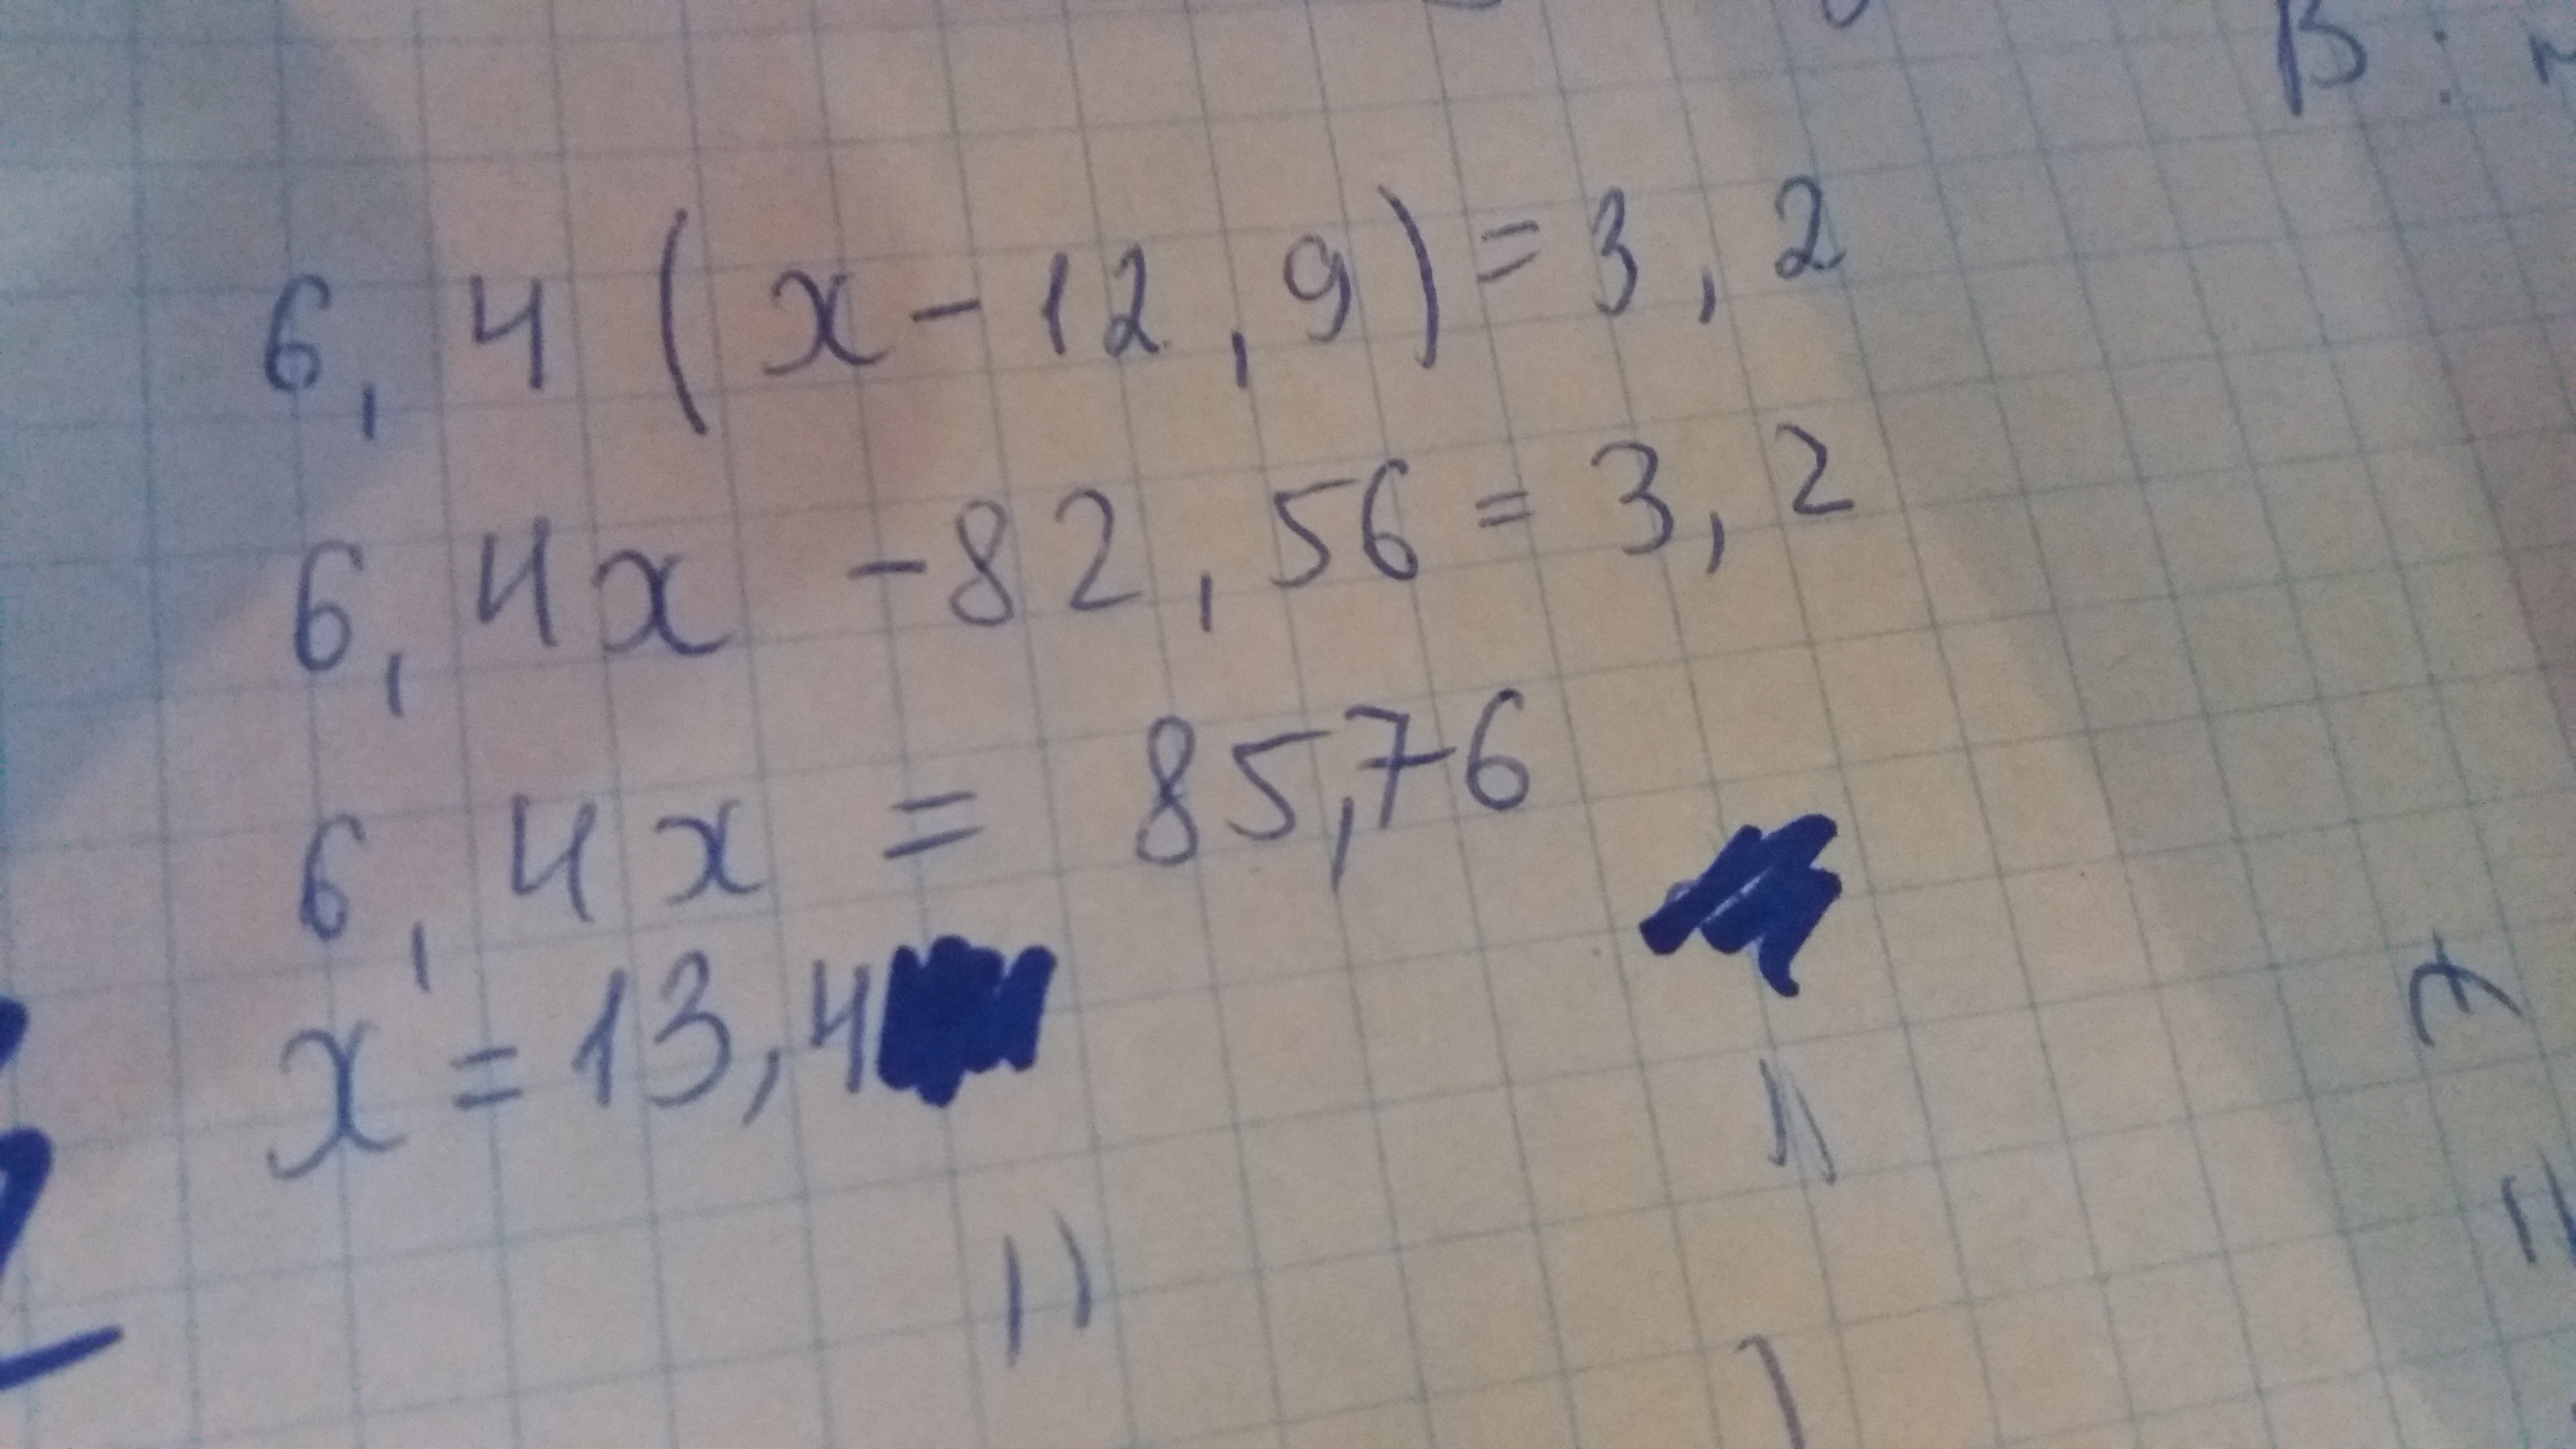 В :
6,4(x-12,9)=3,2
6,4x -82,56=3,2
6,4x = 85,76
x=13,4